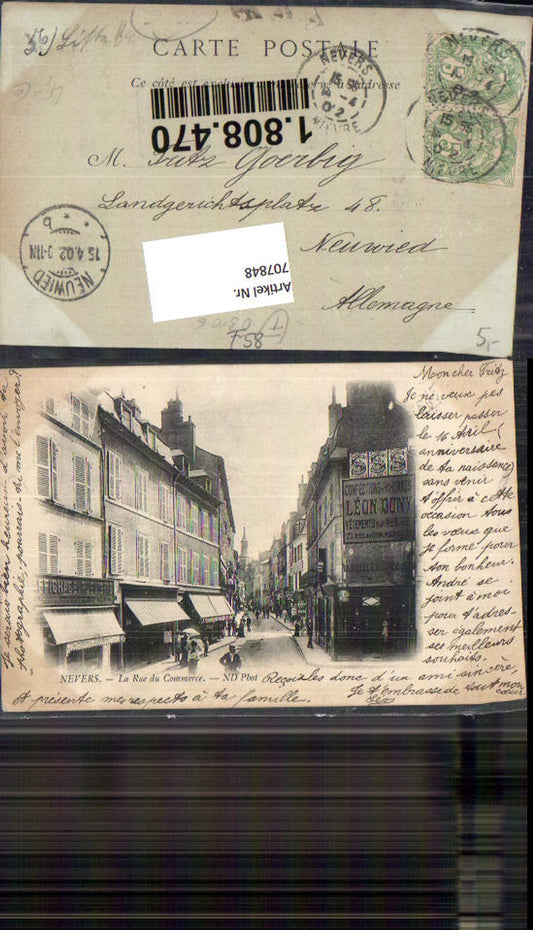 CARTE POSTALE
Ce côté est exclusivement réservé à l'adresse
NEVERS
15 4
02
NIEVRE
NEVERS
15 4
02
NIEVRE
1.808.470
M. Fritz Goerbig
Landgerichtsplatz 48.
Neuwied
Allemagne
NEUWIED
15.4.02 9-11N
* * b
Artikel Nr.
707848
857
5,-
Mon cher Fritz
Je ne veux pas
laisser passer
le 16 Avril (
anniversaire
de ta naissance)
sans venir
t'offrir à cette
occasion tous
les vœux que
je forme pour
ton bonheur.
André se
joint à moi
pour t'adres-
ser également
ses meilleurs
souhaits.
Reçois les donc d'un ami sincère
Je t'embrasse de tout mon
cœur
Léo
et présente mes respects à ta famille.
Je serais bien heureux d'avoir ta
photographie, pourrais-tu me l'envoyer?
SSS
CONFECTIONS
LÉON
VÊTEMENTS SUR MESURE
NEVERS. — La Rue du Commerce. — ND Phot